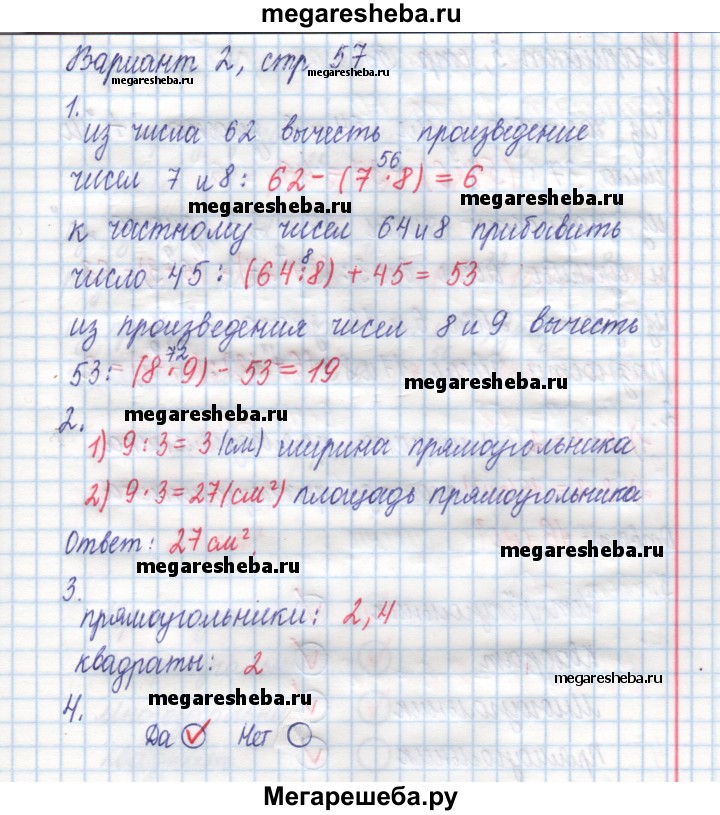 megaresheba.ru
Вариант 2, стр 57
megaresheba.ru megaresheba.ru
1.
из числа 62 вычесть произведение
56
чисел 7 и 8: 62 - (7 · 8) = 6
megaresheba.ru megaresheba.ru
к частному чисел 64 и 8 прибавить
8
число 45: (64:8) + 45 = 53
из произведения чисел 8 и 9 вычесть
72
53: (8 · 9) - 53 = 19
megaresheba.ru
megaresheba.ru
2.
1) 9 : 3 = 3 (см) ширина прямоугольника
2) 9 · 3 = 27 (см²) площадь прямоугольника
Ответ: 27 см².
megaresheba.ru
megaresheba.ru
3.
прямоугольники: 2, 4
квадраты: 2
megaresheba.ru
megaresheba.ru
4.
Да ✓ Нет
Мегарешеба.ру